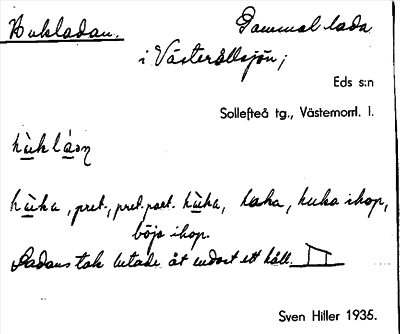 Hukladan. Gammal lada
i Västerållsjön;
Eds s:n
Sollefteå tg., Västernorrl. l.
hùkláɷn
hùka, pret., pret. part. hùka, huka ihop,
böja ihop.
Ladans tak lutade åt endast ett håll.
Sven Hiller 1935.